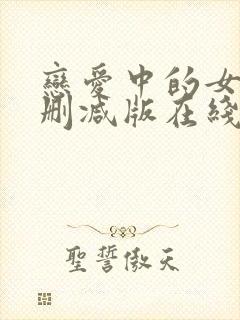 戀愛中的女
刪減版在綫
聖誓傲天